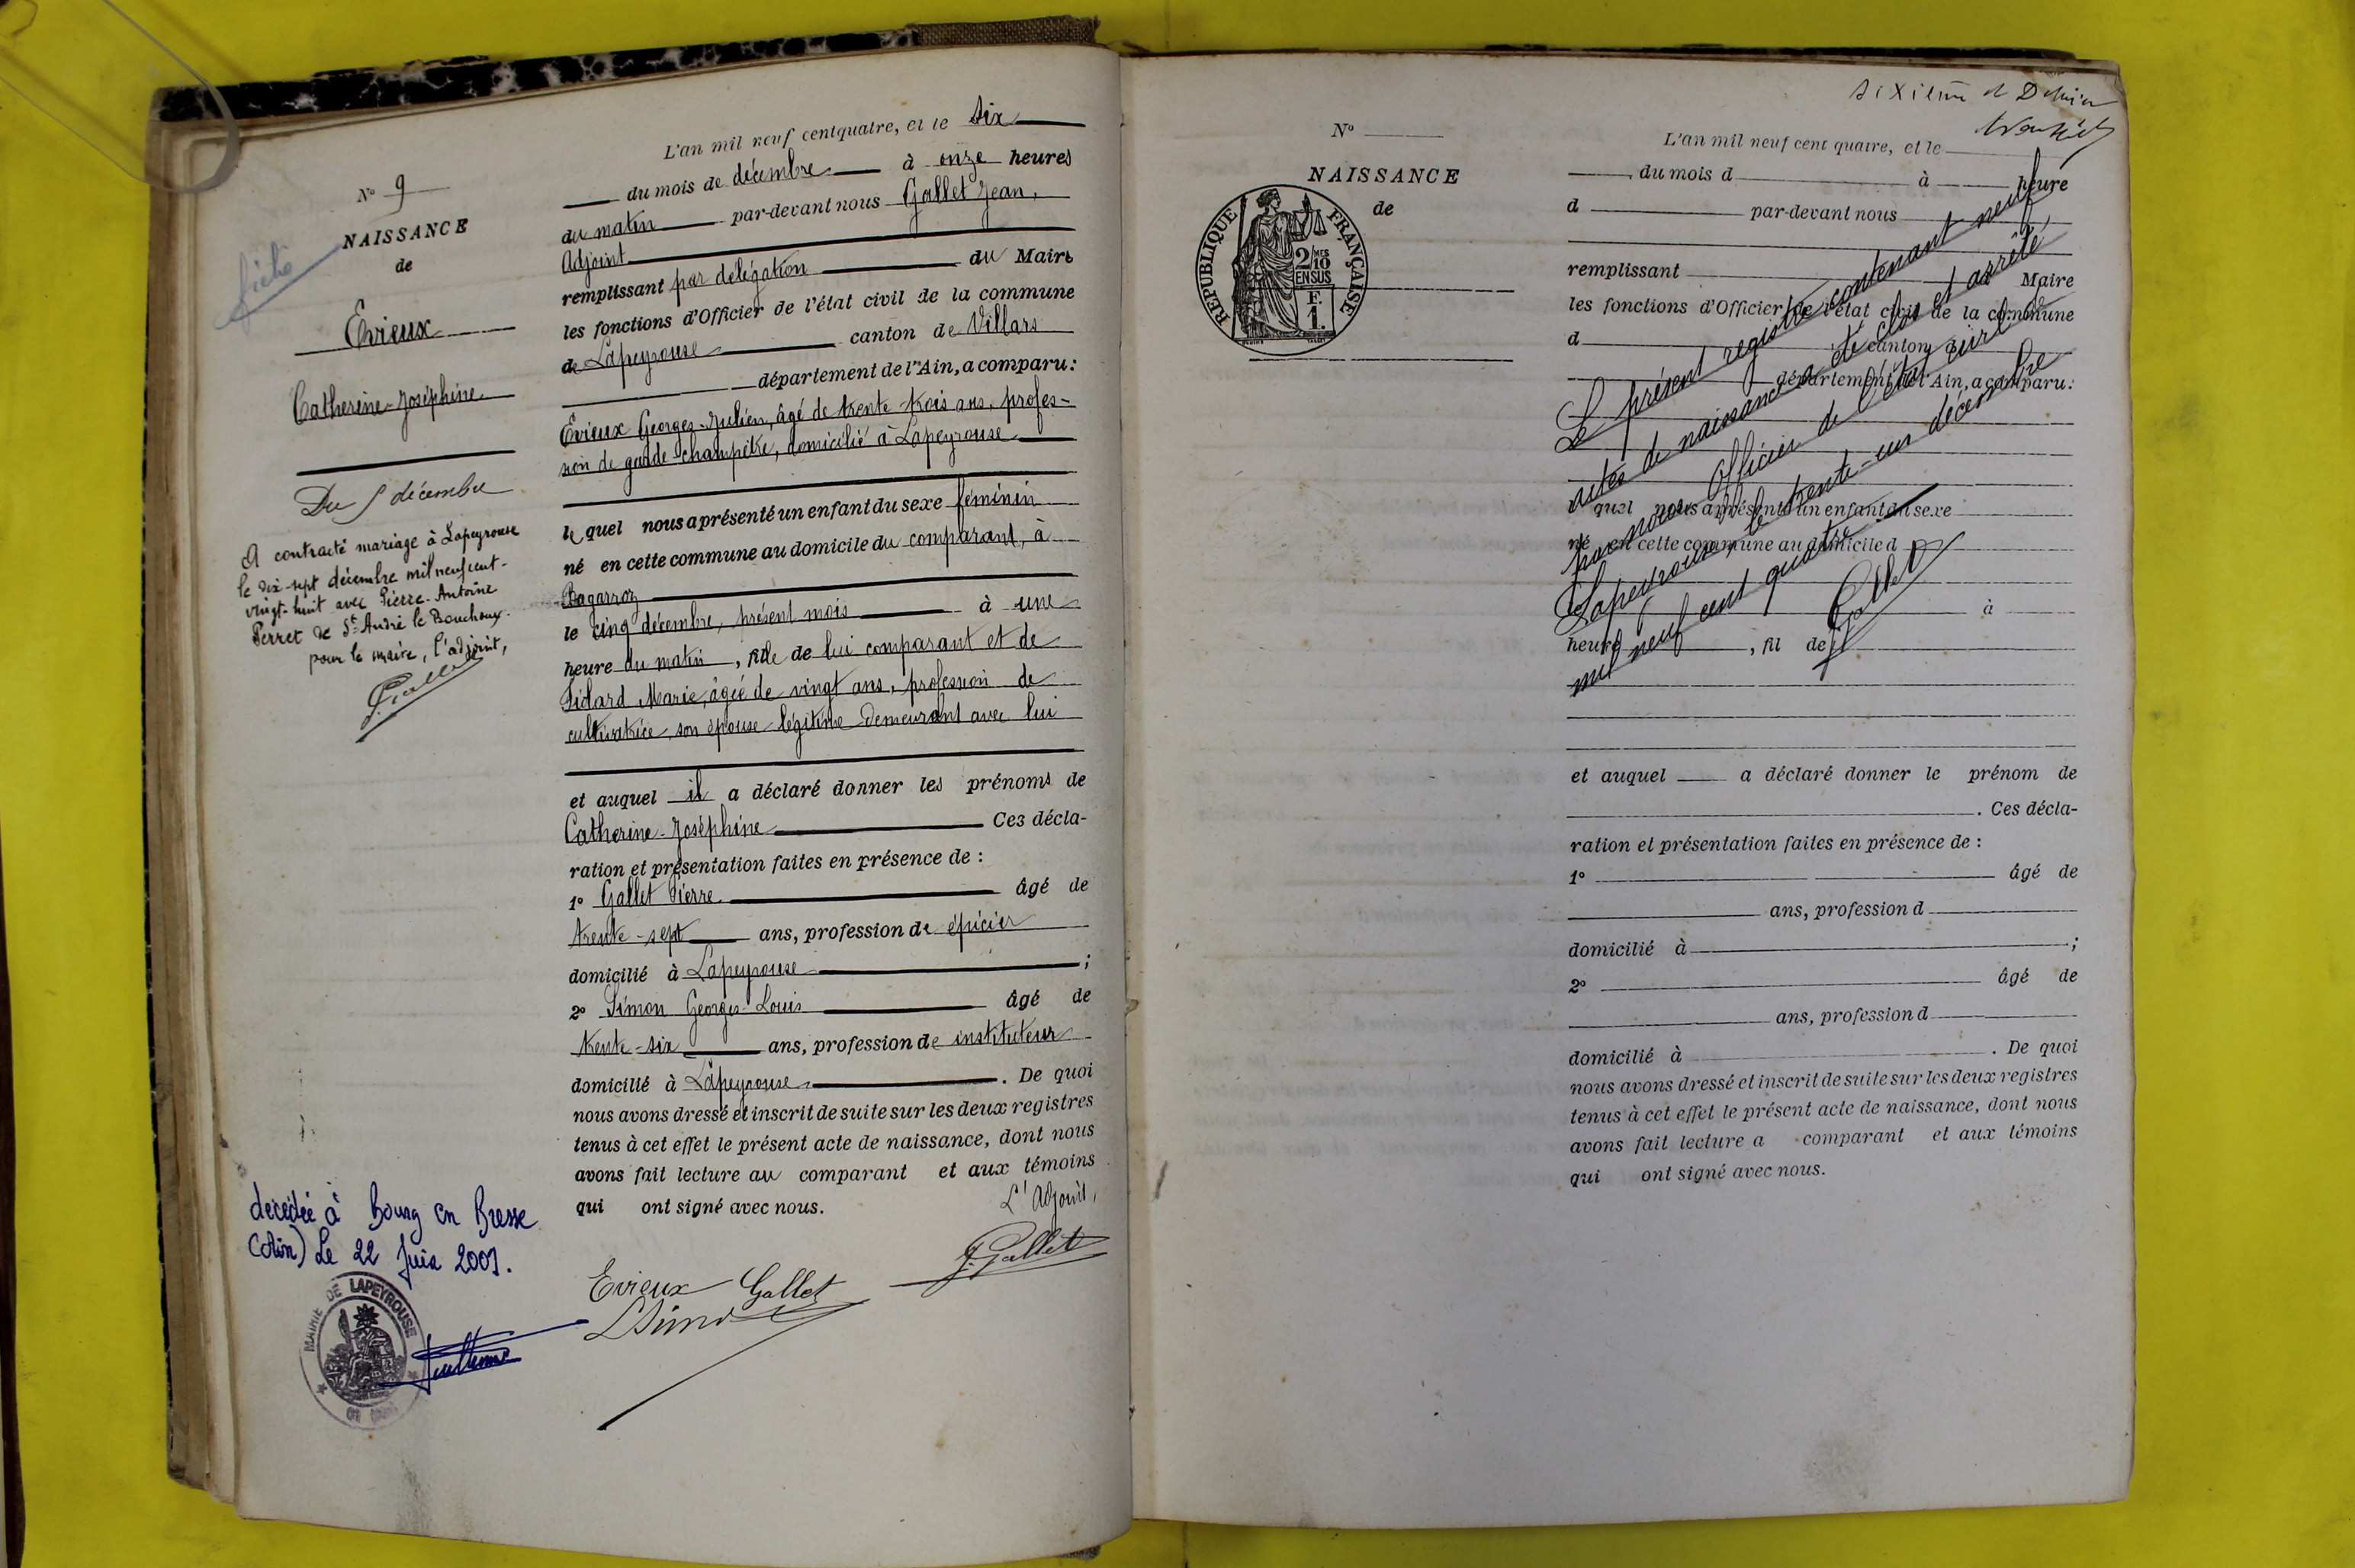 N° 9
NAISSANCE
de
Evieux
Catherine-Joséphine
Du 5 décembre
A contracté mariage à Lapeyrouse
le dix-sept décembre mil neuf cent-
vingt-huit avec Pierre-Antoine
Perret de St André le Bouchoux.
pour le maire, l'adjoint,
J. Gallet
décédée à Bourg en Bresse
(Ain) Le 22 Juin 2001.
MAIRIE DE LAPEYROUSE
L'an mil neuf cent quatre, et le six
du mois de décembre à onze heures
du matin par-devant nous Gallet Jean,
Adjoint
remplissant par délégation du Maire
les fonctions d'Officier de l'état civil de la commune
de Lapeyrouse canton de Villars
département de l'Ain, a comparu:
Evieux Georges-Julien, âgé de trente-trois ans, profes-
sion de garde-champêtre, domicilié à Lapeyrouse
lequel nous a présenté un enfant du sexe féminin
né en cette commune au domicile du comparant, à
Bagarroz
le cinq décembre, présent mois à une
heure du matin, fille de lui comparant et de
Pidard Marie, âgée de vingt ans, profession de
cultivatrice, son épouse légitime demeurant avec lui
et auquel il a déclaré donner les prénoms de
Catherine-Joséphine Ces décla-
ration et présentation faites en présence de :
1° Gallet Pierre âgé de
trente-sept ans, profession de épicier
domicilié à Lapeyrouse ;
2° Simon Georges-Louis âgé de
trente-six ans, profession de instituteur
domicilié à Lapeyrouse. De quoi
nous avons dressé et inscrit de suite sur les deux registres
tenus à cet effet le présent acte de naissance, dont nous
avons fait lecture au comparant et aux témoins
qui ont signé avec nous.
L'Adjoint,
J. Gallet
Evieux Gallet
LSimon
Sixième et Dernier
N°
NAISSANCE
de
REPUBLIQUE FRANÇAISE
2/10 MES
EN SUS
F.
1.
L'an mil neuf cent quatre, et le
, du mois d à heure
d par-devant nous
remplissant Maire
les fonctions d'Officier de l'état civil de la commune
d canton d
département de l'Ain, a comparu:
quel nous a présenté un enfant du sexe
né en cette commune au domicile d
à
heure , fil de
Le présent registre contenant neuf
actes de naissance a été clos et arrêté,
par nous Officier de l'état civil de
Lapeyrouse, le trente-un décembre
mil neuf cent quatre
Gallet
et auquel a déclaré donner le prénom de
. Ces décla-
ration et présentation faites en présence de :
1° âgé de
ans, profession d
domicilié à ;
2° âgé de
ans, profession d
domicilié à . De quoi
nous avons dressé et inscrit de suite sur les deux registres
tenus à cet effet le présent acte de naissance, dont nous
avons fait lecture a comparant et aux témoins
qui ont signé avec nous.